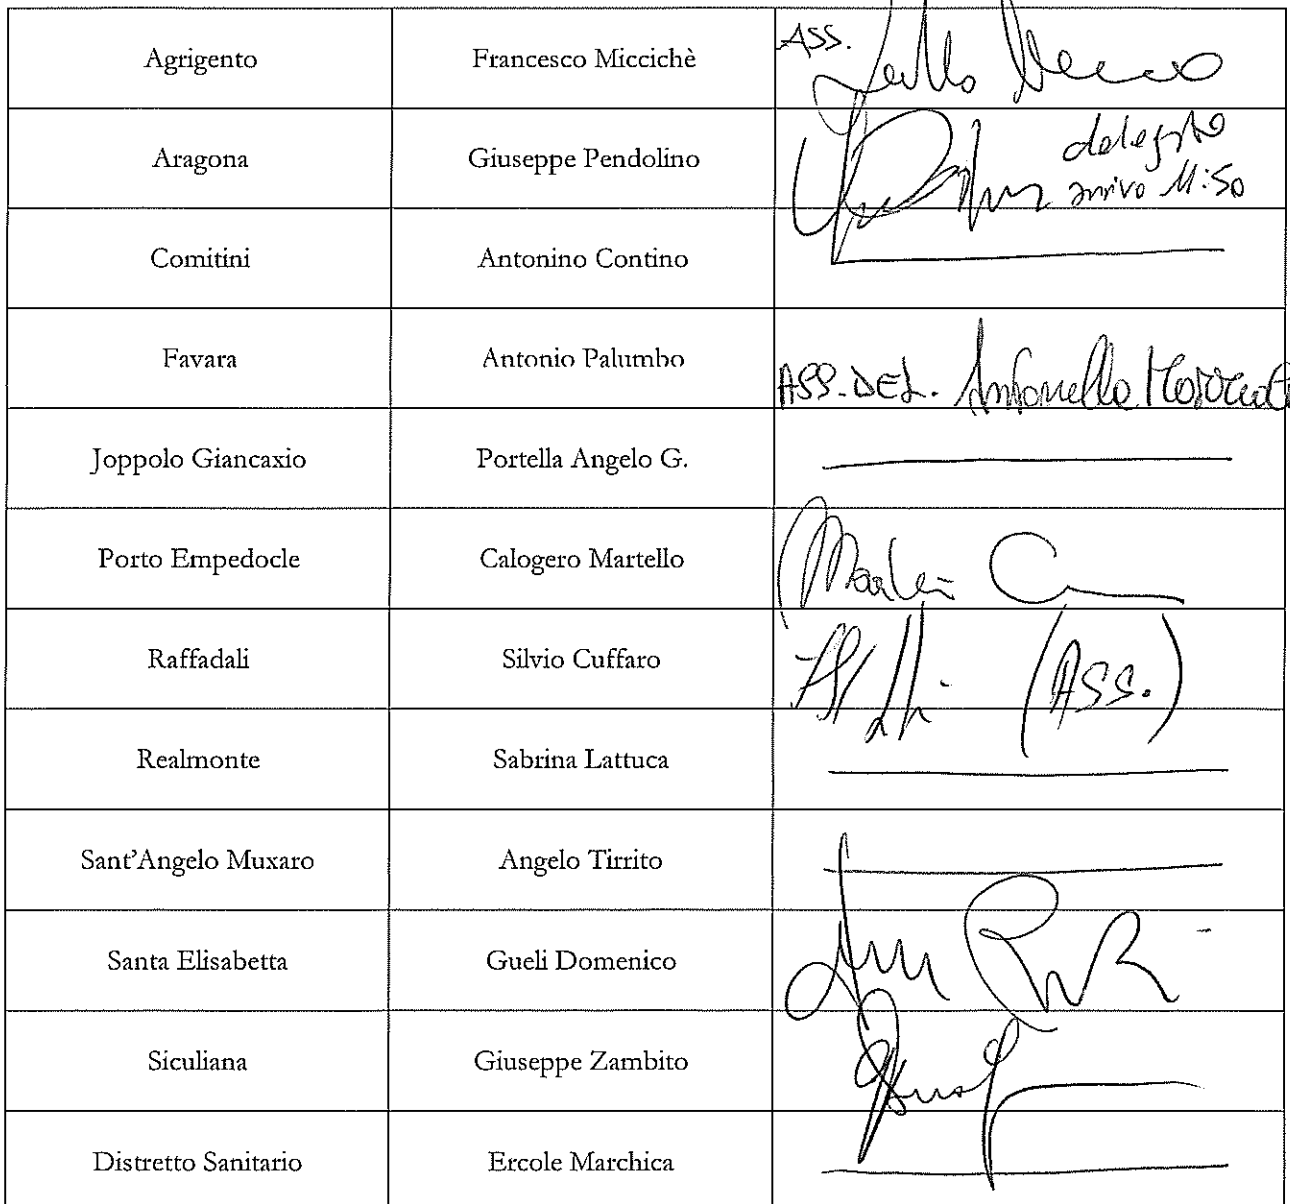 Agrigento Francesco Miccichè ASS.
Aragona Giuseppe Pendolino delegato
arrivo 11:50
Comitini Antonino Contino
Favara Antonio Palumbo ASS. DEL. Antonella
Joppolo Giancaxio Portella Angelo G.
Porto Empedocle Calogero Martello
Raffadali Silvio Cuffaro (ASS.)
Realmonte Sabrina Lattuca
Sant'Angelo Muxaro Angelo Tirrito
Santa Elisabetta Gueli Domenico
Siculiana Giuseppe Zambito
Distretto Sanitario Ercole Marchica